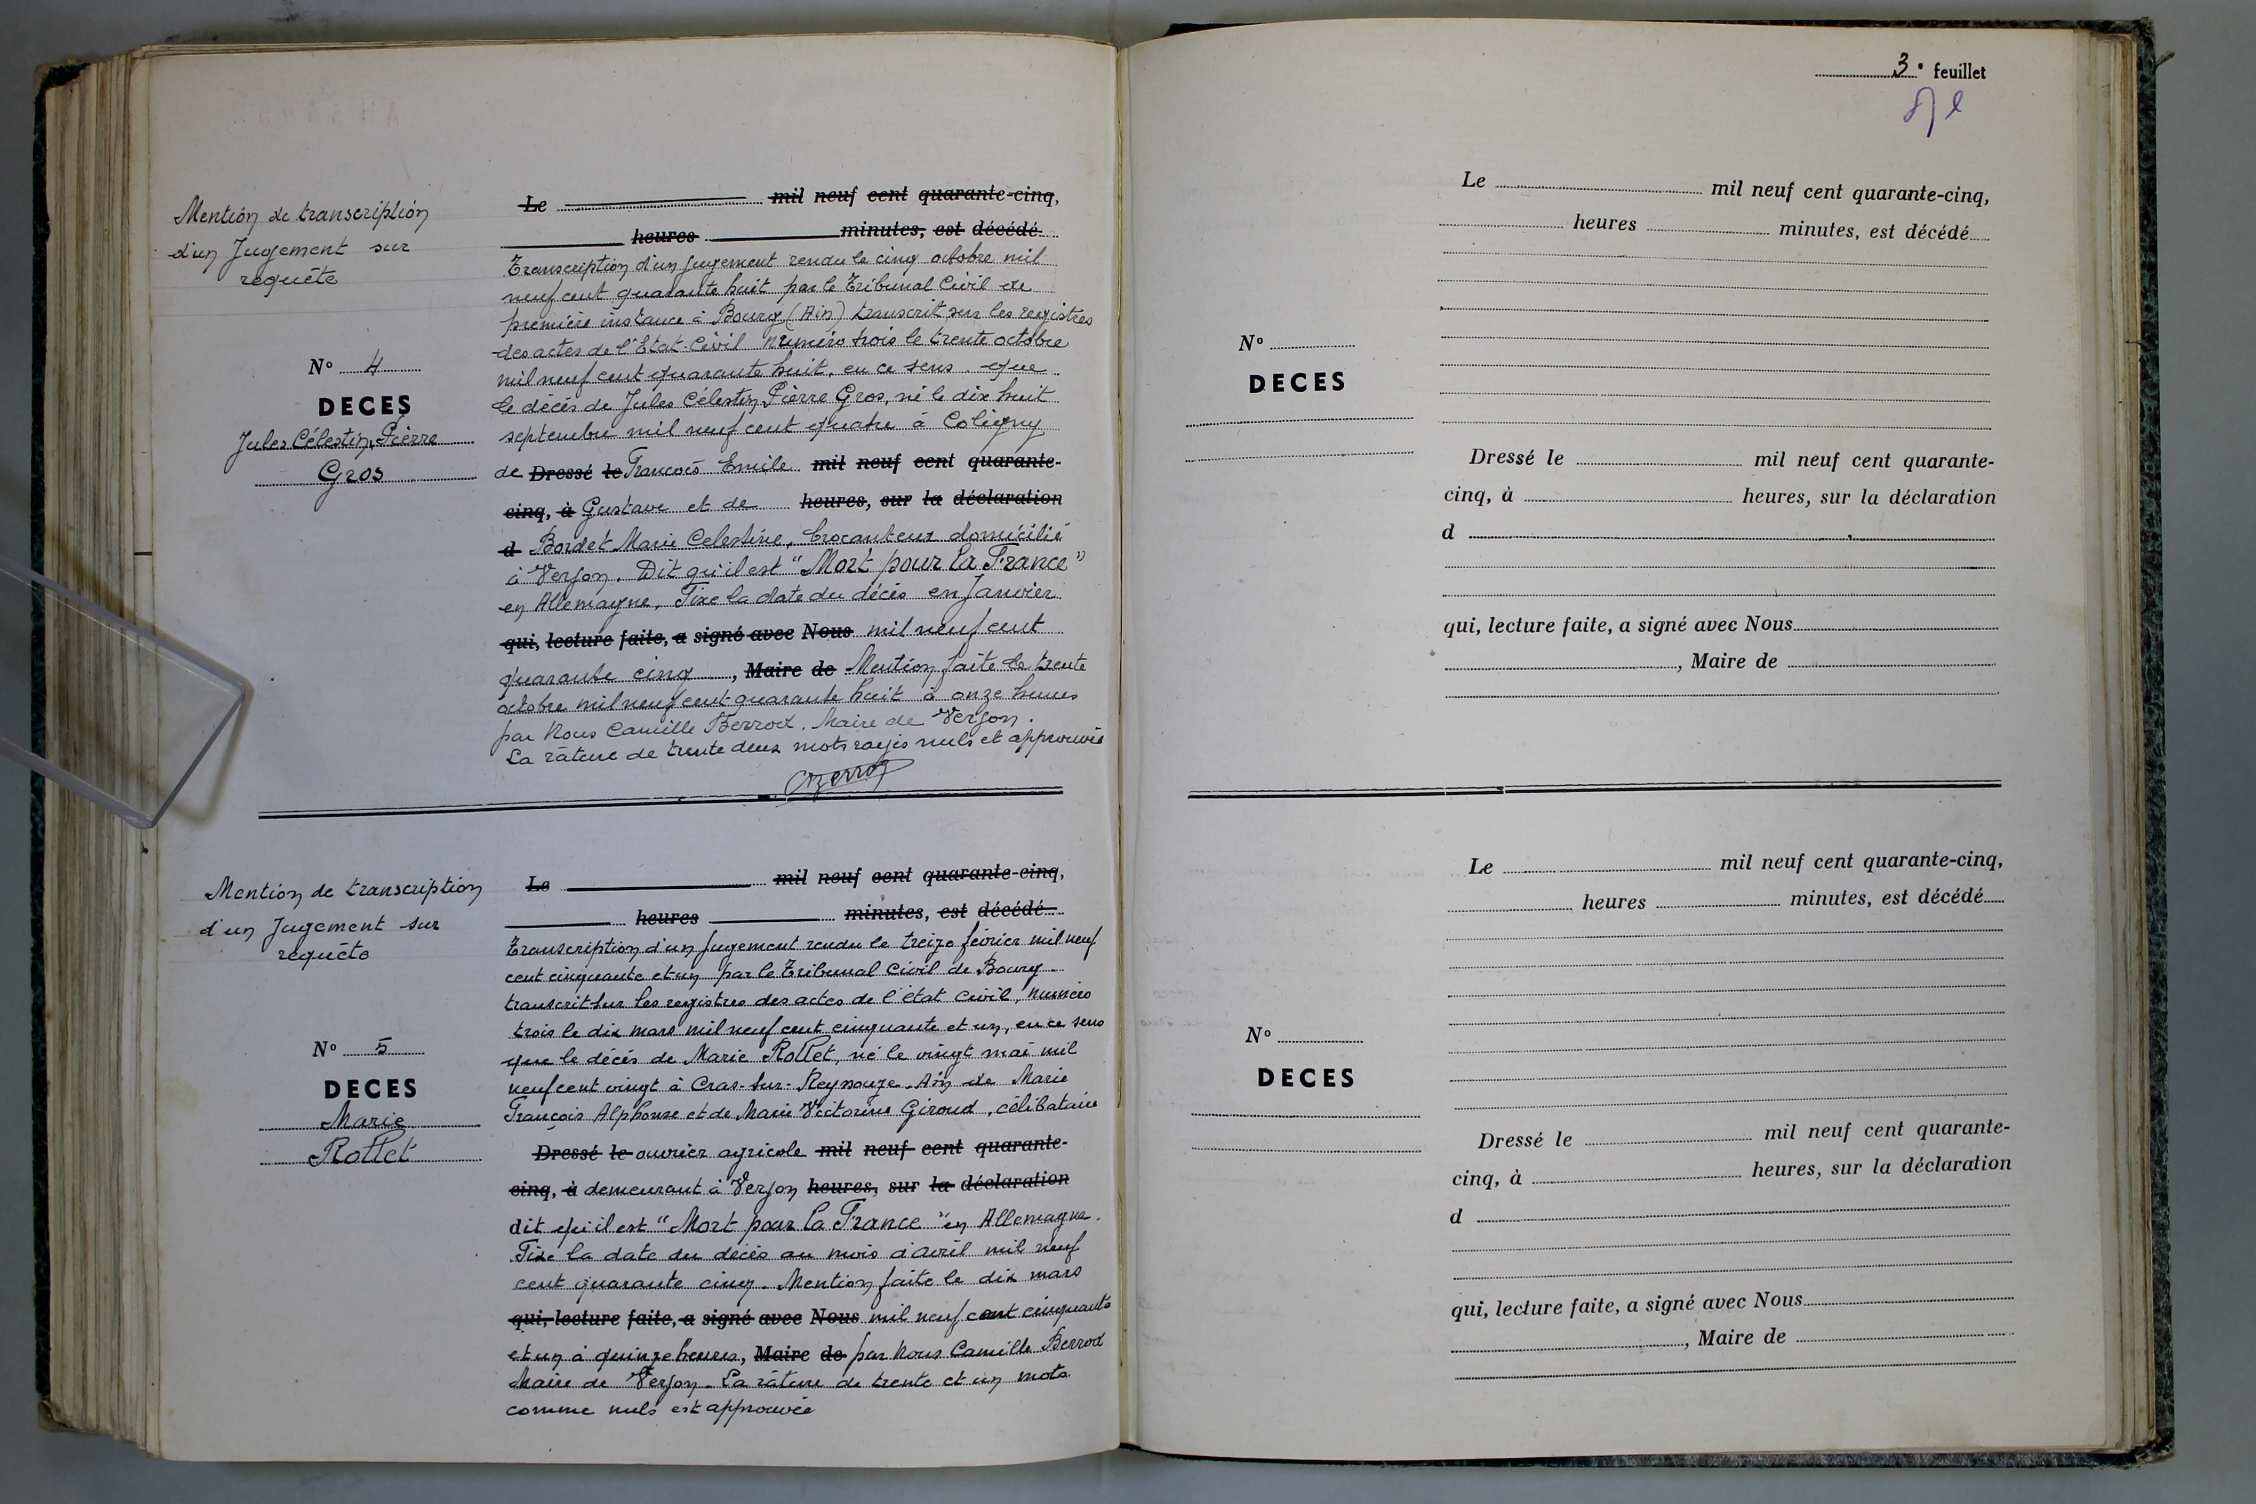 Mention de transcription
d'un Jugement sur
requête
N° 4
DECES
Jules Célestin, Pierre
Gros
Le mil neuf cent quarante-cinq,
heures minutes, est décédé
Transcription d'un Jugement rendu le cinq octobre mil
neuf cent quarante huit par le Tribunal Civil de
première instance à Bourg (Ain) transcrit sur les registres
des actes de l'Etat-Civil Numéro trois le trente octobre
mil neuf cent quarante huit, en ce sens que
le décès de Jules Célestin, Pierre Gros, né le dix huit
septembre mil neuf cent quatre à Coligny
de Dressé le François Emile mil neuf cent quarante-
cinq, à Gustave et de heures, sur la déclaration
d Bordet Marie Celestine, brocanteur domicilié
à Verjon. Dit qu'il est "Mort pour la France"
en Allemagne, Fixe la date du décès en Janvier
qui, lecture faite, a signé avec Nous mil neuf cent
quarante cinq, Maire de Mention faite le trente
octobre mil neuf cent quarante huit à onze heures
par Nous Camille Berrod, Maire de Verjon.
La râture de trente deux mots rayés nuls et approuvée
CBerrod
Mention de transcription
d'un Jugement sur
requête
N° 5
DECES
Marie
Rollet
Le mil neuf cent quarante-cinq,
heures minutes, est décédé
Transcription d'un Jugement rendu le treize février mil neuf
cent cinquante et un par le Tribunal Civil de Bourg
transcrit sur les registres des actes de l'état civil, numéro
trois le dix mars mil neuf cent cinquante et un, en ce sens
que le décès de Marie Rollet, né le vingt mai mil
neuf cent vingt à Cras-sur-Reyssouze Ain de Marie
François Alphonse et de Marie Victorine Giroud, célibataire
Dressé le ouvrier agricole mil neuf cent quarante-
cinq, à demeurant à Verjon heures, sur la déclaration
dit qu'il est "Mort pour la France" en Allemagne.
Fixe la date du décès au mois d'avril mil neuf
cent quarante cinq. Mention faite le dix mars
qui, lecture faite, a signé avec Nous mil neuf cent cinquante
et un à quinze heures, Maire de par Nous Camille Berrod
Maire de Verjon. La râture de trente et un mots
comme nuls est approuvée
3e feuillet
Le mil neuf cent quarante-cinq,
heures minutes, est décédé
N°
DECES
Dressé le mil neuf cent quarante-
cinq, à heures, sur la déclaration
d
qui, lecture faite, a signé avec Nous
, Maire de
Le mil neuf cent quarante-cinq,
heures minutes, est décédé
N°
DECES
Dressé le mil neuf cent quarante-
cinq, à heures, sur la déclaration
d
qui, lecture faite, a signé avec Nous
, Maire de